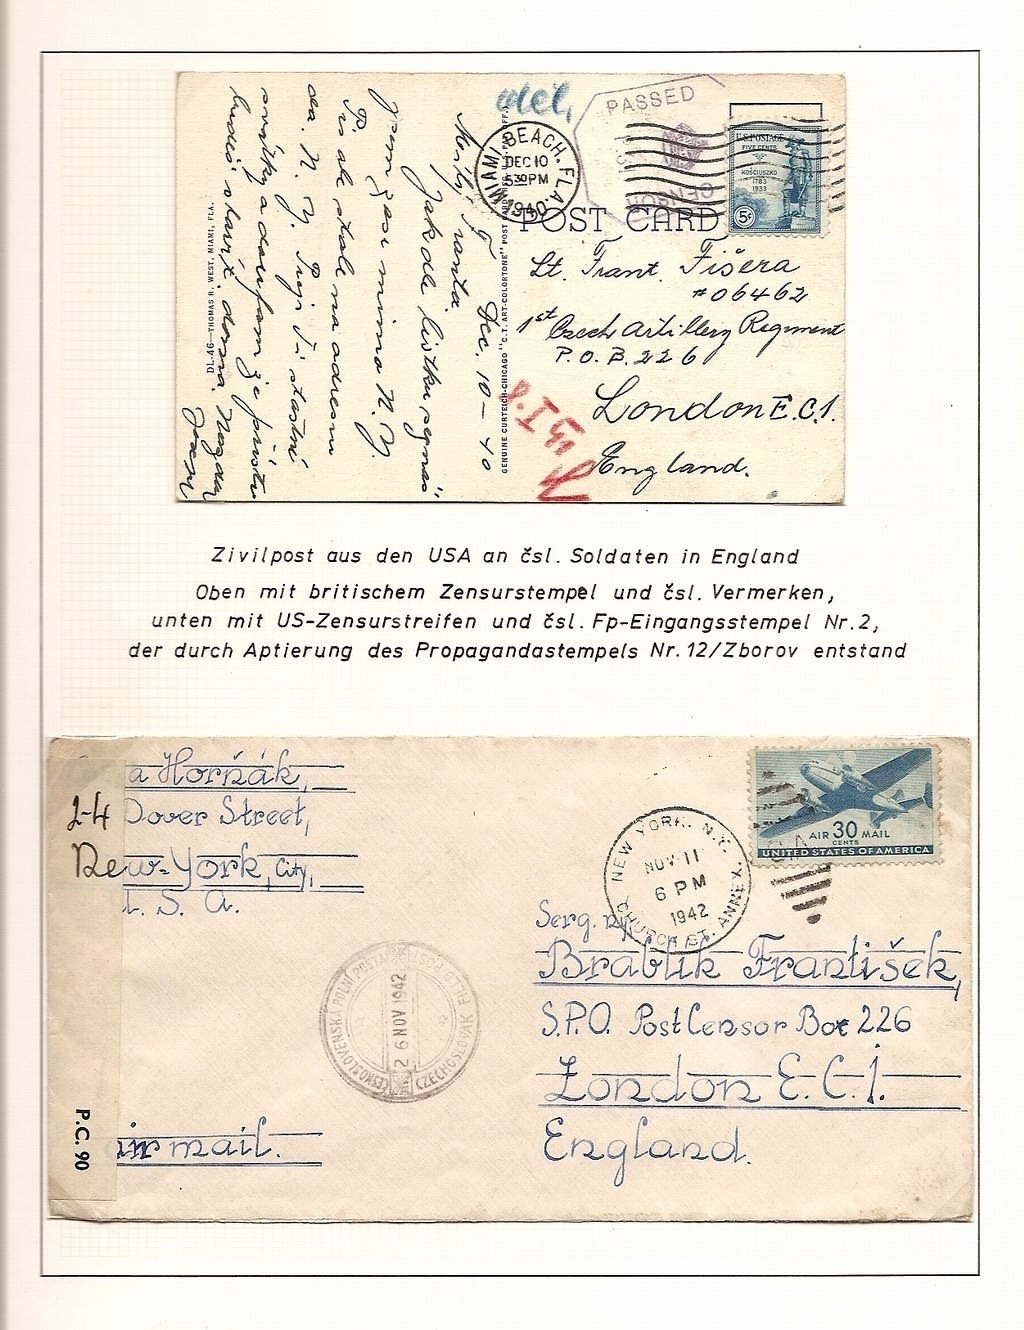 děl.
MIAMI BEACH, FLA.
DEC 10
5 30 PM
1940
PASSED
CENSOR
U.S. POSTAGE
FIVE CENTS
KOSCIUSZKO
1783
1933
5¢
POST CARD
Lt. Frant. Fišera
#06462
1st Czech Artillery Regiment
P.O.B. 226
London E.C.1.
England.
GENUINE CURTEICH-CHICAGO "C.T. ART-COLORTONE" POST
DL-46—THOMAS R. WEST, MIAMI, FLA.
Dec. 10 — 40
Milý Franta.
Jak dle lístku seznáš
jsem zase mimo N.Y.
Piš ale stále na adresu
do N.Y. Přeji Ti šťastné
svátky a doufám že příští
budeš slavit doma. Nazdar
Zivilpost aus den USA an čsl. Soldaten in England
Oben mit britischem Zensurstempel und čsl. Vermerken,
unten mit US-Zensurstreifen und čsl. Fp-Eingangsstempel Nr. 2,
der durch Aptierung des Propagandastempels Nr. 12/Zborov entstand
a Horňák,
2-4 Dover Street,
New-York, City,
U. S. A.
air mail.
P.C. 90
ČESKOSLOVENSKÁ POLNÍ POŠTA
CZECHOSLOVAK FIELD POST
26 NOV 1942
NEW YORK, N.Y.
NOV 11
6 PM
1942
CHURCH ST. ANNEX.
AIR 30 MAIL
CENTS
UNITED STATES OF AMERICA
Serg. ny,
Brablik František,
S.P.O. Post Censor Box 226
London E.C.1.
England.